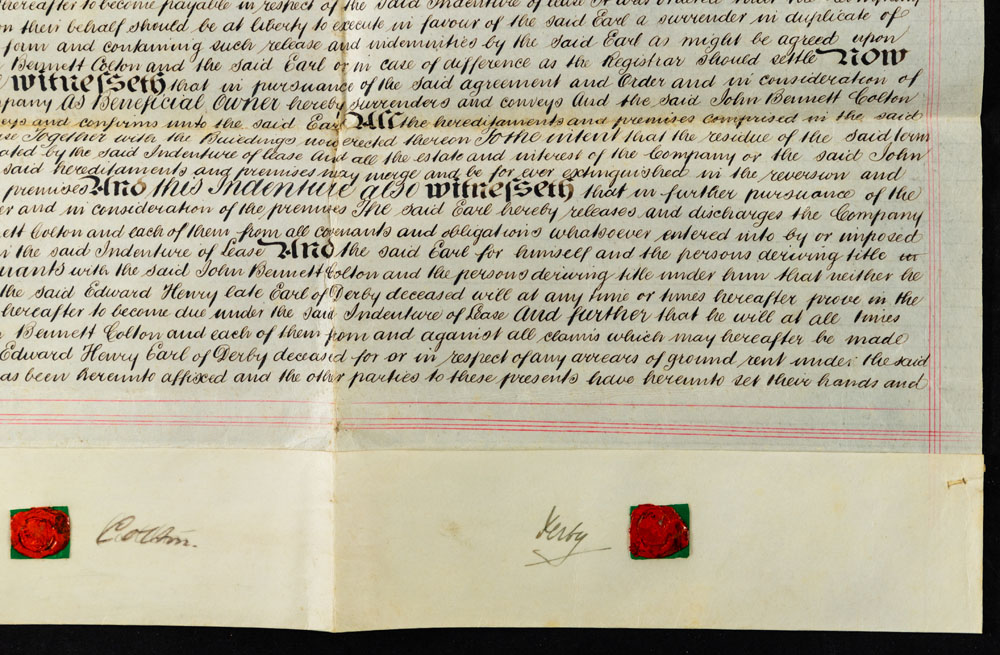 hereafter to become payable in respect of the said Indenture of Lease it was ordered that the Company
on their behalf should be at liberty to execute in favour of the said Earl a surrender in duplicate of
form and containing such release and indemnities by the said Earl as might be agreed upon
Bennett Colton and the said Earl or in case of difference as the Registrar should settle Now
witnesseth that in pursuance of the said agreement and Order and in consideration of
mpany As Beneficial Owner hereby surrenders and conveys And the said John Bennett Colton
eys and confirms unto the said Earl All the hereditaments and premises comprised in the said
se Together with the Buildings now erected thereon To the intent that the residue of the said term
ated by the said Indenture of Lease And all the estate and interest of the Company or the said John
said hereditaments and premises may merge and be for ever extinguished in the reversion and
premises And this Indenture also witnesseth that in further pursuance of the
er and in consideration of the premises The said Earl hereby releases and discharges the Company
ett Colton and each of them from all covenants and obligations whatsoever entered into by or imposed
n the said Indenture of Lease And the said Earl for himself and the persons deriving title
nants with the said John Bennett Colton and the persons deriving title under him that neither he
the said Edward Henry late Earl of Derby deceased will at any time or times hereafter prove in the
hereafter to become due under the said Indenture of Lease And further that he will at all times
Bennett Colton and each of them from and against all claims which may hereafter be made
Edward Henry Earl of Derby deceased for or in respect of any arrears of ground rent under the said
as been hereunto affixed and the other parties to these presents have hereunto set their hands and
Colton. Derby